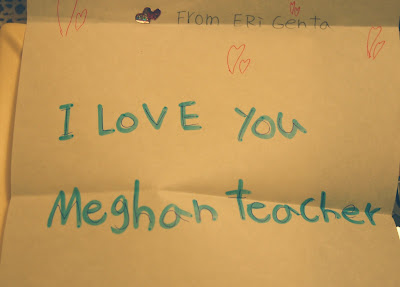 From ERi Genta
I LOVE You
Meghan teacher